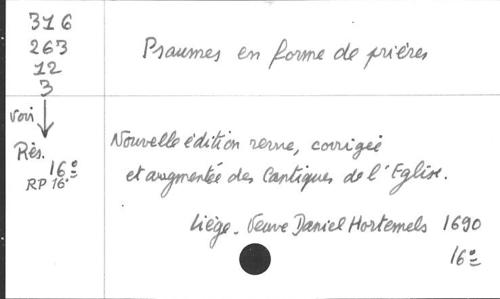 316
263
12
3
voir
Rés.
16º
RP 16.
Psaumes en forme de prières
Nouvelle édition revue, corrigée
et augmentée des Cantiques de l'Eglise.
Liège. Veuve Daniel Hortemels 1690
16º